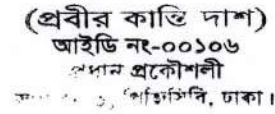 (প্রবীর কান্তি দাশ)
আইডি নং-০০১০৬
প্রধান প্রকৌশলী
ঢাকা।